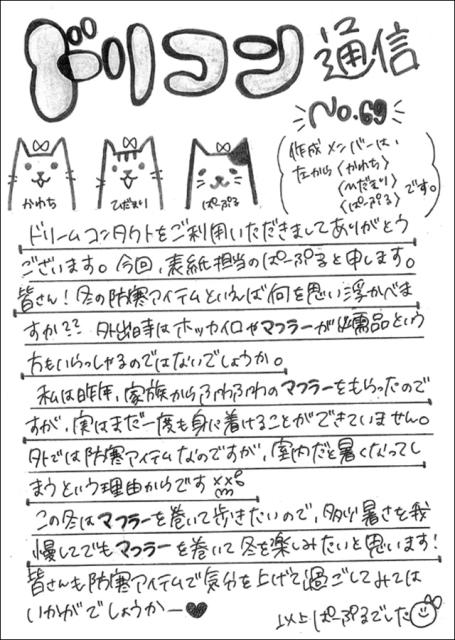 ドリコン通信
No.69
作成メンバーは、
左から〈かわち〉
〈ひだまり〉
〈ぱーぷる〉です。
かわち ひだまり ぱーぷる
ドリームコンタクトをご利用いただきましてありがとう
ございます。今回、表紙担当のぱーぷると申します。
皆さん!冬の防寒アイテムといえば何を思い浮かべま
すか?? 外出時はホッカイロやマフラーが必需品という
方もいらっしゃるのではないでしょうか。
私は昨年、家族からふわふわのマフラーをもらったので
すが、実はまだ一度も身に着けることができていません。
外では防寒アイテムなのですが、室内だと暑くなってし
まうという理由からです
この冬はマフラーを巻いて歩きたいので、多少暑さを我
慢してでもマフラーを巻いて冬を楽しみたいと思います!
皆さんも防寒アイテムで気分を上げて過ごしてみては
いかがでしょうかー♥
以上ぱーぷるでした